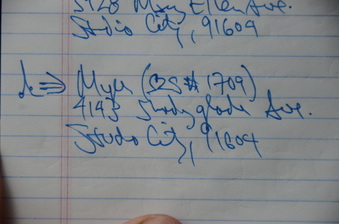 5428 Mary Ellen Ave.
Studio City, 91604
Myu (BS# 1709)
4143 Shadyglade Ave.
Studio City, 91604